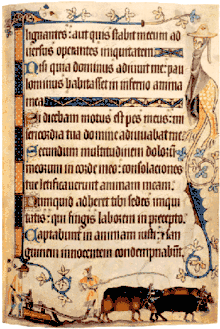 lignantes: aut quis stabit mecum ad
versus operantes iniquitatem
Nisi quia dominus adiuvit me: pau
lominus habitasset in inferno anima
mea
Si dicebam motus est pes meus: mi
sericordia tua domine adiuvabat me
Secundum multitudinem dolorum
meorum in corde meo: consolationes
tue letificaverunt animam meam
Nunquid adheret tibi sedes iniqui
tatis: qui fingis laborem in precepto
Captabunt in animam iusti: et san
guinem innocentem condempnabunt